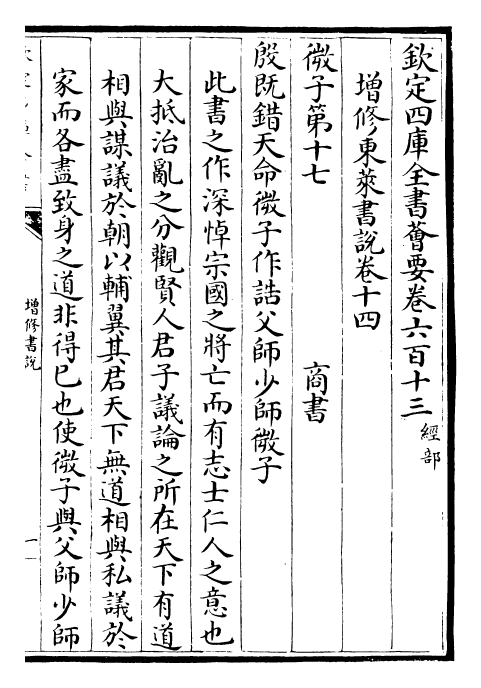 欽定四庫全書薈要卷六百十三 經部
增修東萊書說卷十四
微子第十七 商書
殷既錯天命微子作誥父師少師微子
此書之作深悼宗國之將亡而有志士仁人之意也
大抵治亂之分觀賢人君子議論之所在天下有道
相與謀議於朝以輔翼其君天下無道相與私議於
家而各盡致身之道非得已也使微子與父師少師
增修書說
一